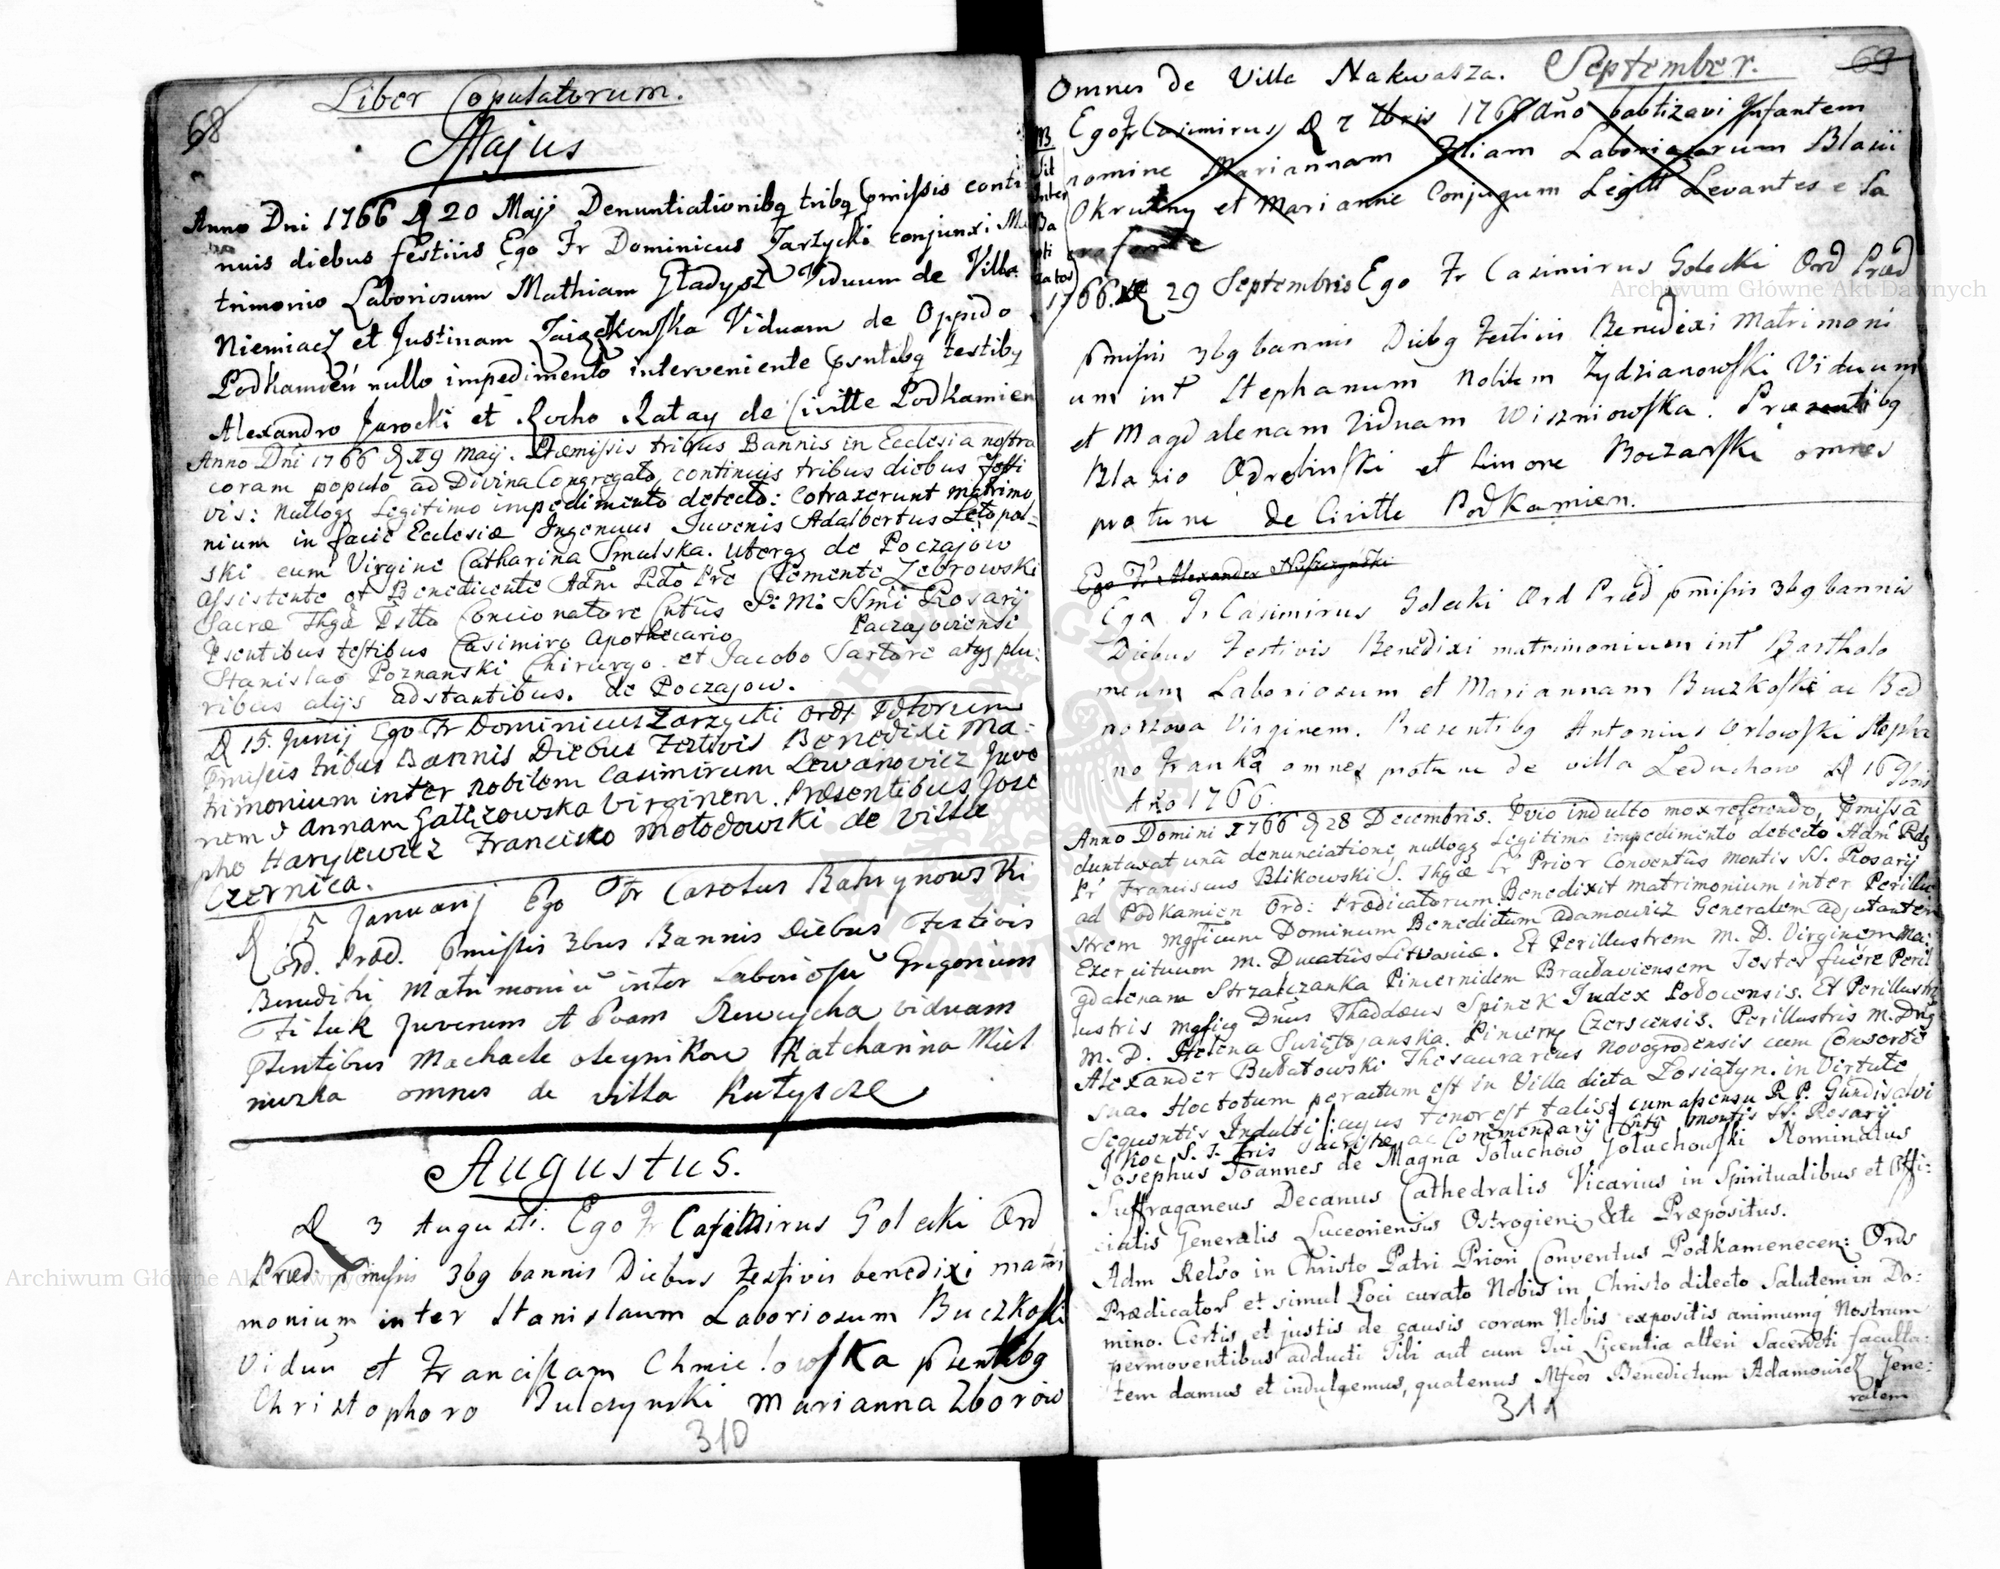 68
Liber Copulatorum.
Majus
Anno Dni 1766 D 20 Maji Denuntiationibq tribq pmissis conti
nuis diebus festivis Ego Fr Dominicus Zarzycki conjunxi Ma
trimonio Laboriosum Mathiam Gładysz Viduum de Villa
Niemiacz et Justinam Zaiączkowska Viduam de Oppido
Podkamień nullo impedimento interveniente psntibq testibq
Alexandro Jurocki et Rocho Ratay de Civitte Podkamien
Anno Dni 1766 D 19 Maij. Præmissis tribus Bannis in Ecclesia nostra
coram populo ad Divina Congregato, continuis tribus diebus festi
vis: Nulloqz Legitimo impedimento detecto: Cotraxerunt matrimo
nium in facie Ecclesiæ Ingenuus Juvenis Adalbertus Letopol=
ski cum Virgine Catharina Smulska. Uterqz de Poczajow
Assistente et Benedicente Adm Rdo Pre Clemente Zebrowski
Sacræ Thgæ Pstto Concionatore Cntûs P: M: SSmi Rosarij
Psentibus testibus Casimiro Apothecario Paczajoviensi
Stanislao Poznanski Chirurgo. et Jacobo Sartore atqz plu:
ribus alijs adstantibus. de Poczajow.
D 15. Junij Ego Fr Dominicus Zarzycki Ord Pdtorum
Pmissis tribus Bannis Diebus Festivis Benedixi Ma:
trimonium inter nobilem Casimirum Lewanovicz Juve
nem & Annam Galizowska Virginem. Præsentibus Jose
pho Harylewicz Francisko Mołodowski de Villa
Czernica.
D 5 Januarij Ego Fr Carolus Ratuynowski
Ord. Præd. pmissis 3bus Bannis Diebus Festivis
Benedixi Matrimoniū inter Laboriosū Gregorium
Filuk Juvenem et Evam Rewucha viduam
Psentibus Machacle oleynikow Katcharina Miel
niczka omnes de villa Kutyscze
Augustus.
D 3 Augusti. Ego Fr Casimirus Golecki Ord
Præd: pmissis 3bq bannis Diebus Festivis benedixi matri
monium inter Stanislaum Laboriosum Buczkoski
Viduū et Franciscam Chmielowska psentibq
Christophoro Julczynski Marianna Zborow
310
69
Omnes de Villa Nakwasza. September.
Ego Fr Casimirus D 7 7bris 1766 Año babtizavi Infantem
nomine Mariannam Filiam Laboriosorum Blasii
Okrutny et Marianne Conjugum Legitt Levantes e Sa
cro fonte
1766. D 29 Septembris Ego Fr Casimirus Golecki Ord Præd
pmissis 3bq bannis Diebq Festivis Benedixi Matrimoni
um int Stephanum Nobilem Zydzianowski Viduum
et Magdalenam Viduam Wiszniowska. Præsentibq
Blasio Odrobinski et Simone Boczarski omnes
protunc de Civitte Podkamien.
Ego Fr Alexander
Ego Fr Casimirus Golecki Ord Præd pmissis 3bq bannis
Diebus Festivis Benedixi matrimonium int Bartholo
meum Laboriosum et Mariannam Buczkoski ac Bed
noszova Virginem. Præsentibq Antonius Orlowski Stepha
no Franka omnes protunc de villa Leduchow D 16 9bris
Año 1766.
Anno Domini 1766 D 28 Decembris. Pvio indulto mox referendo, Pmissâ
duntaxat unâ denunciatione, nulloqz Legitimo impedimento detecto Adm Rdq
Pr Franciscus Blikowski S. Thgiæ Lr Prior Conventûs Montis SS. Rosarij
ad Podkamien Ord: Prædicatorum Benedixit matrimonium inter Perillu
strem Mgficum Dominum Benedictum Adamowicz Generalem Adjutantem
Exercituum M. Ducatûs Litvaniæ. Et Perillustrem M. D. Virginem Ma:
gdalenam Strzałczanka Pincernidem Bracłaviensem Testes fuere Peril
lustris Mgficq Dnus Thaddæus Spinek Judex Podociensis. Et Perillustris
M. D. Helena Swiętojanska. Pincerna Czerscensis. Perillustris M. Dnq
Alexander Bułatowski Thesaurarius Novogrodensis cum Consorte
sua. Hoctotum peractum est in Villa dicta Losiatyn. in Virtute
Sequentis Indulti cuius tenor est talis cum assensu R. P. Gundisalvi
Josephus Joannes de Magna Gołuchow Gołuchowski Nominatus
Suffraganeus Decanus Cathedralis Vicarius in Spiritualibus et Offi:
cialis Generalis Luceoriensis Ostrogien: &te Præpositus.
Adm Reldo in Christo Patri Priori Conventus Podkamenecen: Ords
Prædicator et simul Loci curato Nobis in Christo dilecto Salutem in Do:
mino. Certis et justis de causis coram Nobis expositis animumq Nostrum
permoventibus adducti Tibi aut cum Tui Licentia alteri Sacerdoti faculta:
tem damus et indulgemus, quatenus Mfcos Benedictum Adamowicz Gene:
ralem
311
Archiwum Główne Akt Dawnych
Archiwum Główne Akt Dawnych